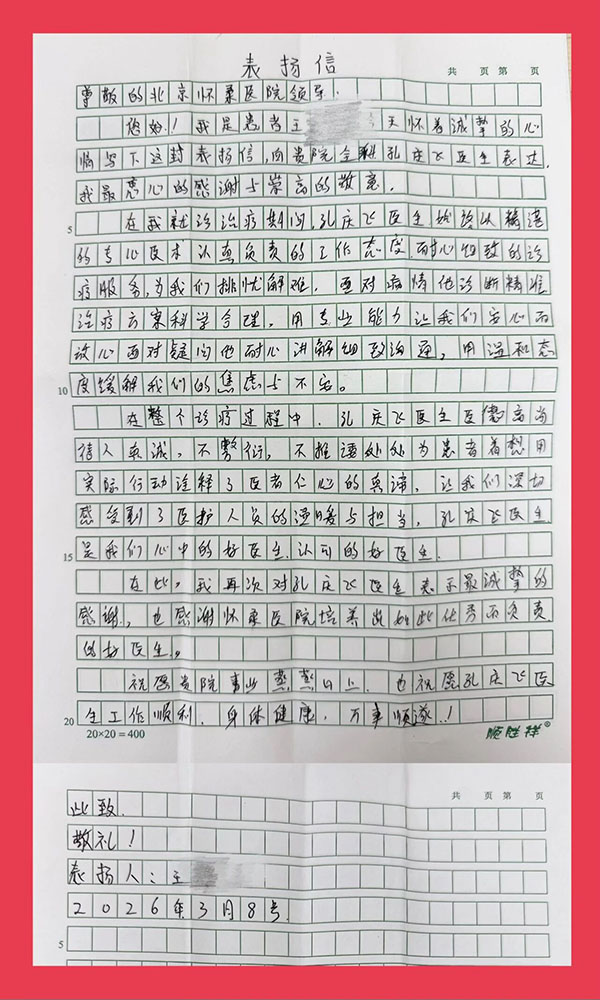 表扬信
共 页 第 页
尊敬的北京怀柔医院领导.
您好.！我是患者王 天怀着诚挚的心
情写下这封表扬信,向贵院全科孔庆飞医生表达.
我最衷心的感谢与崇高的敬意.
5 在我就诊治疗期间,孔庆飞医生始终以精湛
的专心医术认真负责的工作态度.耐心细致的诊
疗服务,为我们排忧解难. 面对病情他诊断精准
治疗方案科学合理. 用专业能力让我们安心而
放心面对疑问他耐心讲解细致沟通, 用温和态
10 度缓解我们的焦虑与不安。
在整个诊疗过程中. 孔庆飞医生医德高尚
待人真诚. 不敷衍, 不推诿处处为患者着想用
实际行动诠释了医者仁心的真谛. 让我们深切
感受到了医护人员的温暖与担当. 孔庆飞医生.
15 是我们心中的好医生.认可的好医生.
在此, 我再次对孔庆飞医生表示最诚挚的
感谢., 也感谢怀柔医院培养出如此优秀而负责.
的好医生。
祝愿贵院事业蒸蒸日上. 也祝愿孔庆飞医
20 生工作顺利. 身体健康, 万事顺遂.！
20×20=400
顺胜祥®
共 页 第 页
此致.
敬礼！
表扬人：王
2026年3月8号.
5